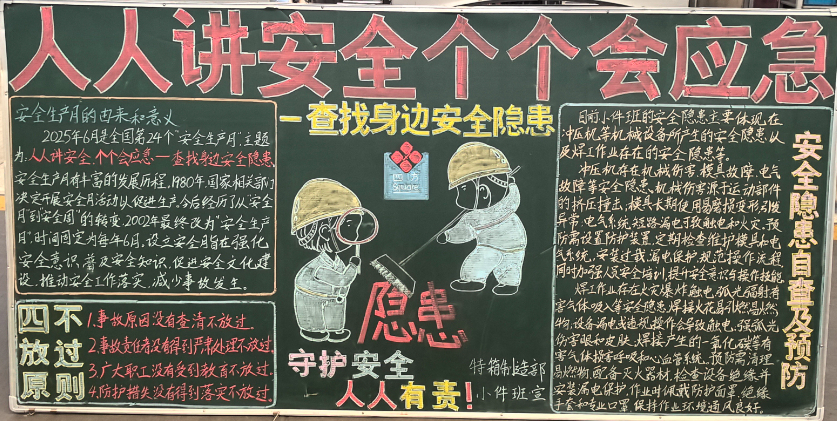 人人讲安全个个会应急
一查找身边安全隐患
安全生产月的由来和意义
2025年6月是全国第24个"安全生产月",主题
为:人人讲安全、个个会应急一查找身边安全隐患
安全生产月有丰富的发展历程,1980年,国家相关部门
决定开展安全月活动以促进生产,今后经历了从"安全
月"到"安全周"的转变,2002年最终改为"安全生产
月",时间固定为每年6月,设立安全月旨在强化
安全意识、普及安全知识、促进安全文化建
设、推动安全工作落实、减少事故发生。
四不
放过
原则
1.事故原因没有查清不放过.
2.事故责任者没有得到严肃处理不放过.
3.广大职工没有受到教育不放过.
4.防护措失没有得到落实不放过.
四方
Square
隐患
守护安全
人人有责!
特箱制造部
小件班宣
目前小件班的安全隐患主要体现在
冲压机等机械设备所产生的安全隐患,以
及焊工作业存在的安全隐患等。
冲压机存在机械伤害,模具故障、电气
故障等安全隐患,机械伤害源于运动部件
的挤压撞击,模具长期使用易磨损变形引发
异常,电气系统短路漏电可致触电和火灾,预
防需设置防护装置,定期检查维护模具和电
气系统,安装过载漏电保护,规范操作流程,
同时加强人员安全培训,提升安全意识与操作技能
焊工作业存在火灾爆炸、触电、弧光辐射、有
害气体吸入等安全隐患,焊接火花易引燃易燃
物,设备漏电或违规操作会导致触电,强弧光
伤害眼和皮肤,焊接产生的一氧化碳等有
害气体损害呼吸和心血管系统,预防需清理
易燃物,配备灭火器材,检查设备绝缘并
安装漏电保护,作业时佩戴防护面罩、绝缘
手套和专业口罩,保持作业环境通风良好。
安全隐患自查及预防